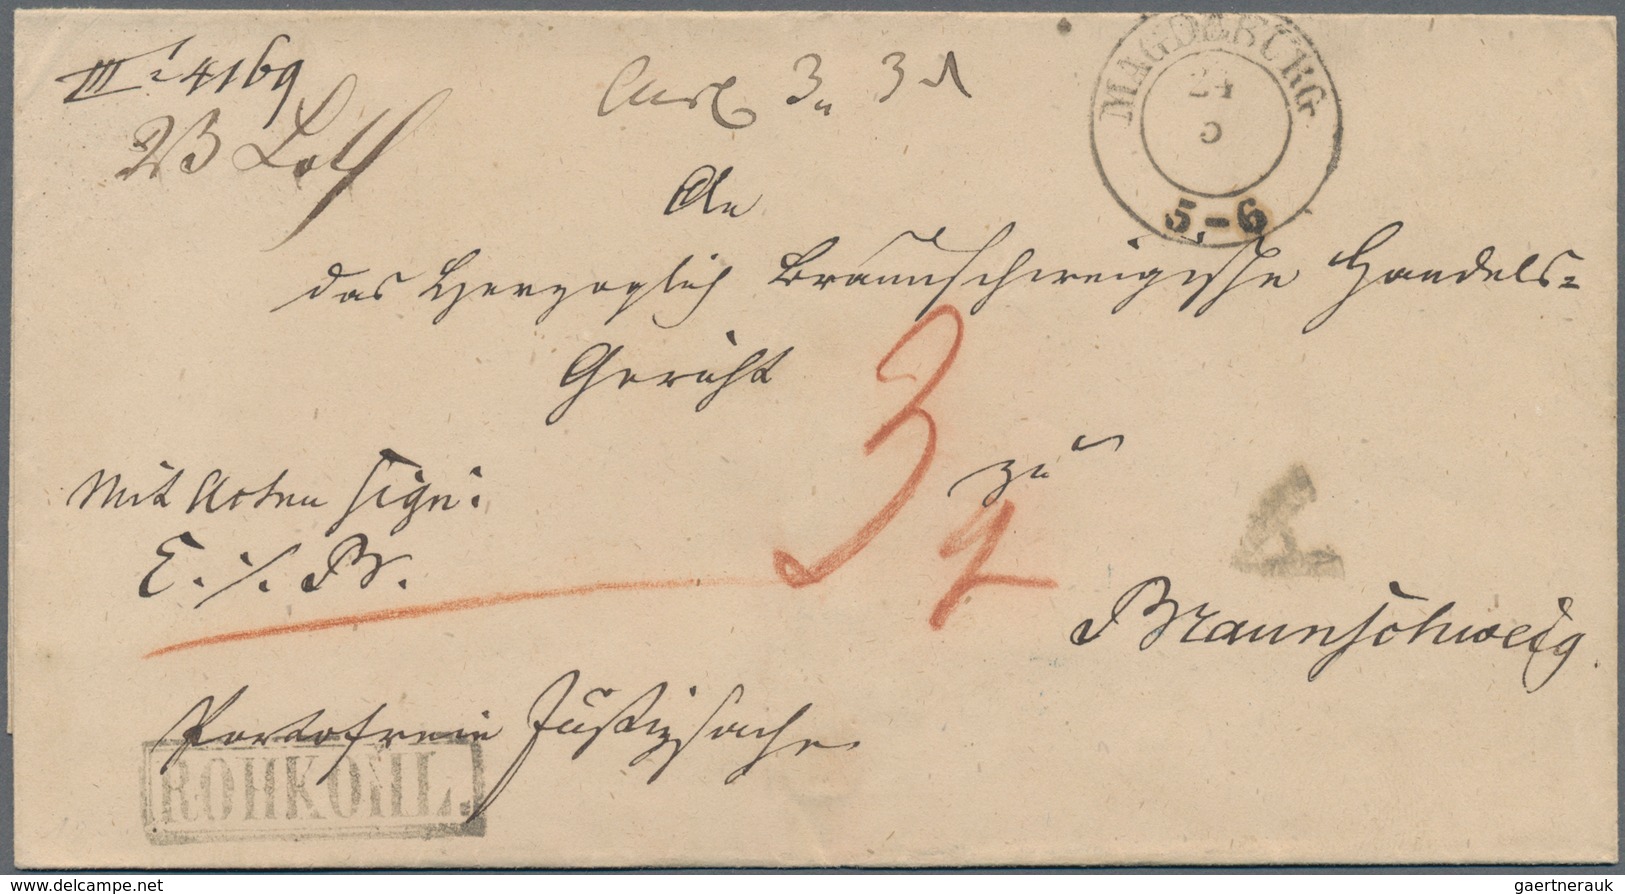 III i 4169
2/3 Loth
3 3
MAGDEBURG
24
5
5-6
An
das Herzoglich Braunschweigische Handels=
Gericht
3/4
zu
Mit Acten sign:
E. ./. Br.
Braunschweig.
Portofreie Justizsache
ROHKOHL.
www.delcampe.net
gaertnerauk